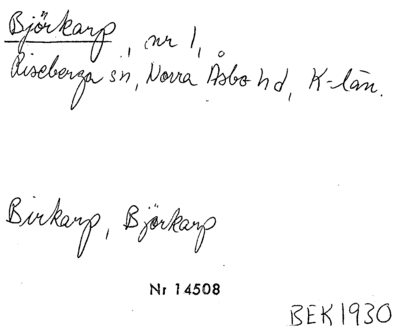 Björkarp, nr 1,
Riseberga sn, Norra Åsbo hd, K-län.
Birkarp, Björkarp
Nr 14508
BEK 1930